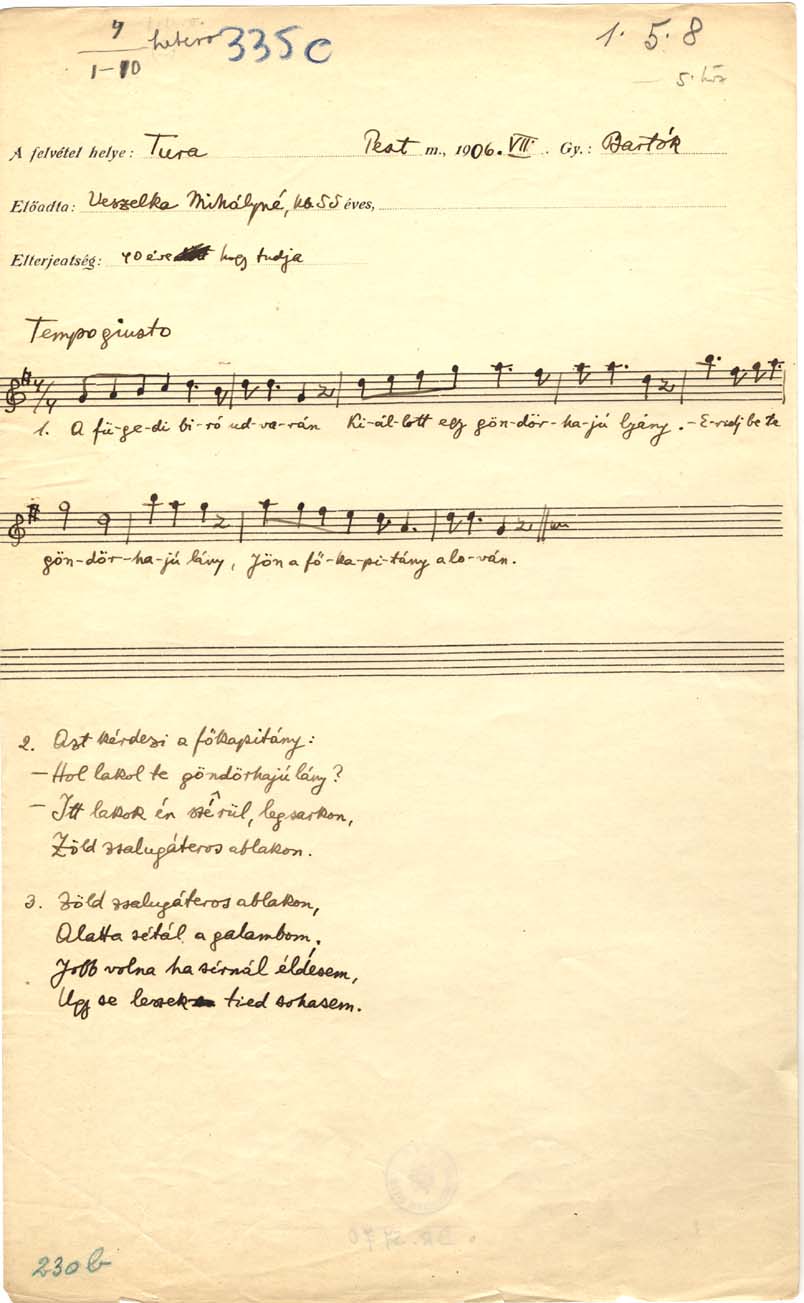 4 hetero 335c 1. 5. 8
1–10 5. köz
A felvétel helye: Tura Pest m., 1906. VII. Gy.: Bartók
Előadta: Veszelka Mihályné, kb 55 éves,
Elterjedtség: 40 éve hogy tudja
Tempo giusto
1. A fü-ge-di bi-ró ud-va-rán Ki-ál-lott egy gön-dör-ha-jú lyány. – E-redj be te
gön-dör-ha-jú lány, Jön a fő-ka-pi-tány a lo-ván.
2. Azt kérdezi a főkapitány:
– Hol lakol te göndörhajú lány?
– Itt lakok én szérül, legsarkon,
Zöld zsalugáteros ablakon.
3. Zöld zsalugáteros ablakon,
Alatta sétál a galambom,
Jobb volna ha sírnál éldesem,
Ugy se leszek tied sohasem.
230b